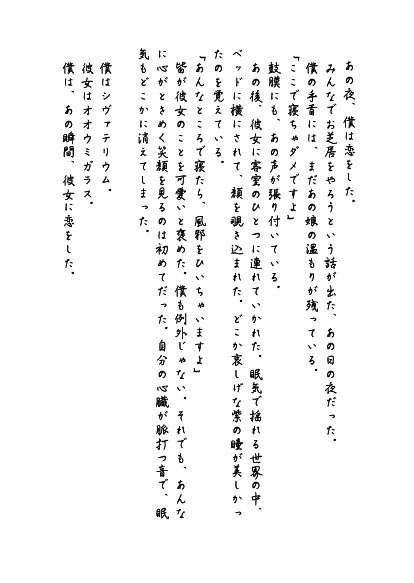 あの夜、僕は恋をした。
みんなでお芝居をやろうという話が出た、あの日の夜だった。
僕の手首には、まだあの娘の温もりが残っている。
「ここで寝ちゃダメですよ」
鼓膜にも、あの声が張り付いている。
あの後、彼女に客室のひとつに連れていかれた。眠気で揺れる世界の中、
ベッドに横にされて、顔を覗き込まれた。どこか哀しげな紫の瞳が美しかっ
たのを覚えている。
「あんなところで寝たら、風邪をひいちゃいますよ」
皆が彼女のことを可愛いと褒めた。僕も例外じゃない。それでも、あんな
に心がときめく笑顔を見るのは初めてだった。自分の心臓が脈打つ音で、眠
気もどこかに消えてしまった。
僕はシヴァテリウム。
彼女はオオウミガラス。
僕は、あの瞬間、彼女に恋をした。